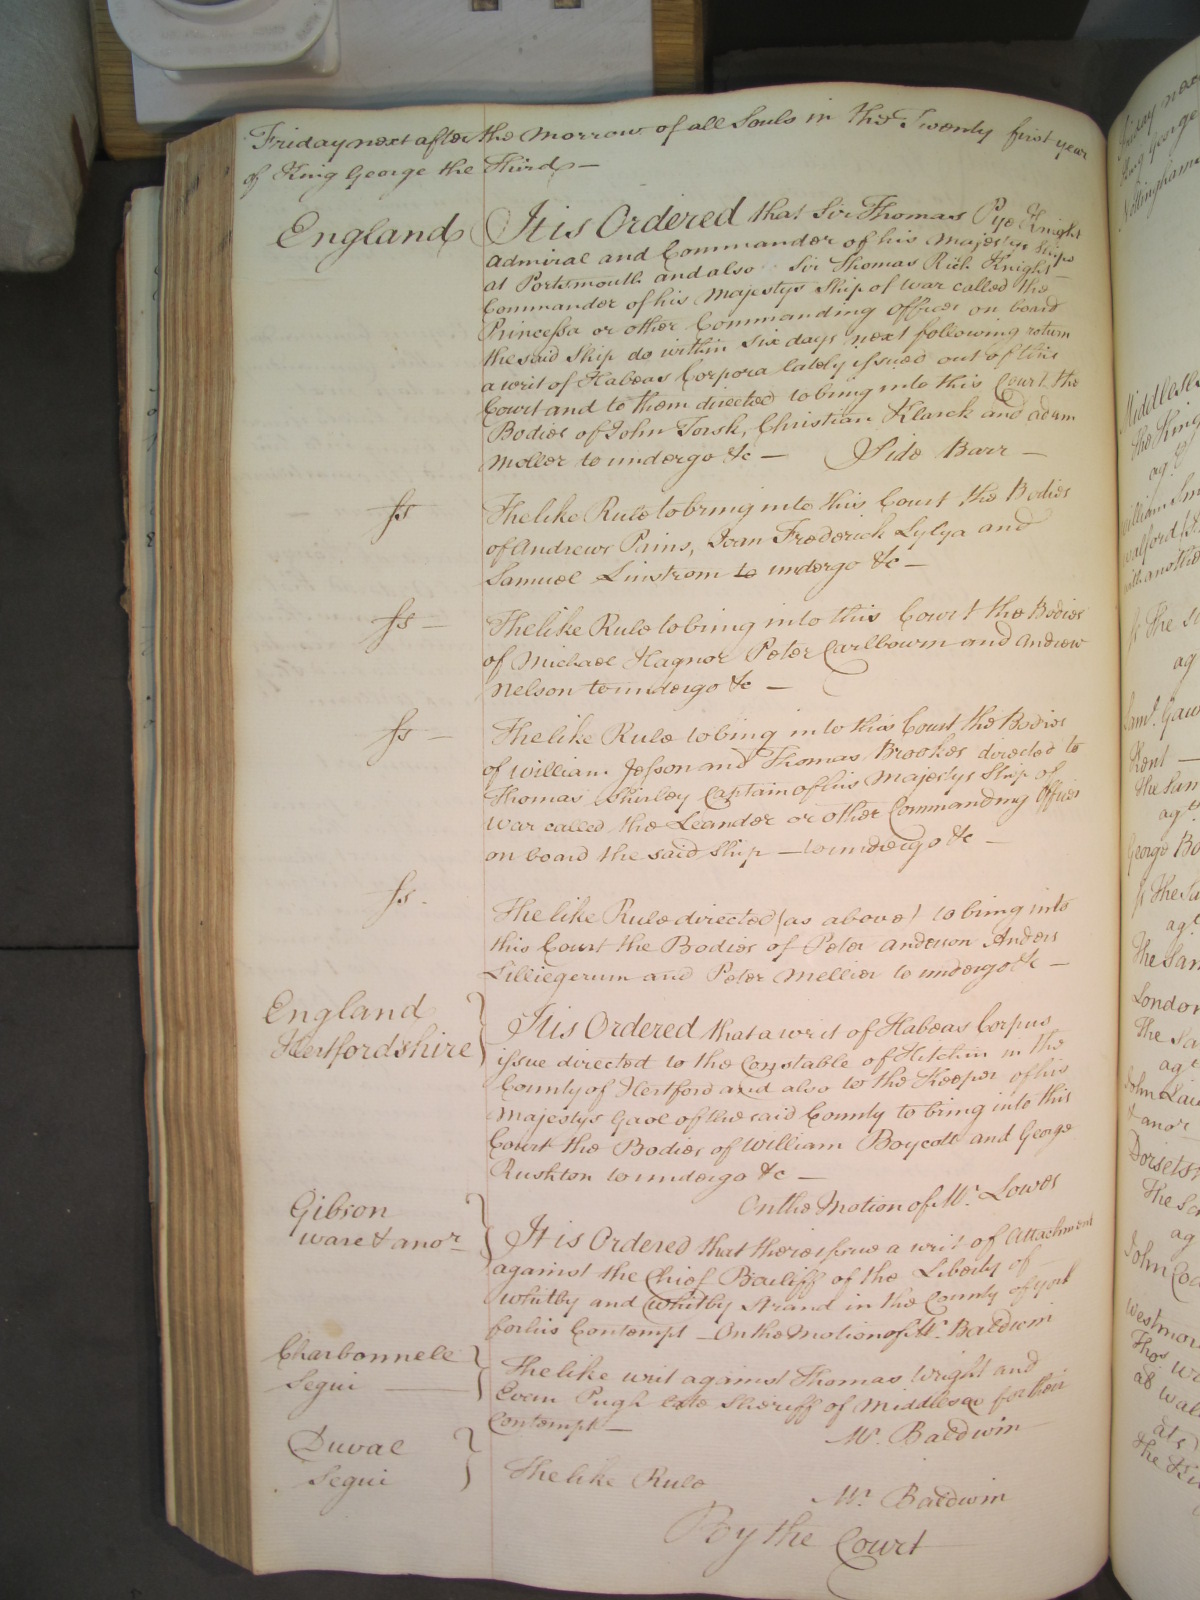 Friday next after the Morrow of all Souls in the Twenty first year
of King George the Third —
England It is Ordered that Sir Thomas Pye Knight
Admiral and Commander of his Majestys Ships
at Portsmouth and also Sir Thomas Rich Knight
Commander of his Majestys Ship of War called the
Princessa or other Commanding Officer on board
the said Ship do within six days next following return
a writ of Habeas Corpora lately issued out of this
Court and to them directed to bring into this Court the
Bodies of John Torsk, Christian Klarck and adam
Moller to undergo &c — Side Barr —
ss The like Rule to bring into this Court the Bodies
of Andrews Pains, Joan Frederick Lylya and
Samuel Linstrom to undergo &c —
ss — The like Rule to bring into this Court the Bodies
of Michael Hagnor Peter Carlbourn and Andrew
Nelson to undergo &c —
ss — The like Rule to bring into this Court the Bodies
of William Jesson and Thomas Brookes directed to
Thomas Shirley Captain of his Majestys Ship of
War called the Leander or other Commanding Officer
on board the said Ship — to undergo &c —
ss. The like Rule directed (as above) to bring into
this Court the Bodies of Peter Anderson Anders
Lilliegerum and Peter Mellier to undergo &c —
England
Hertfordshire It is Ordered that a writ of Habeas Corpus
issue directed to the Constable of Hitchin in the
County of Hertford and also to the Keeper of his
Majestys Gaol of the said County to bring into this
Court the Bodies of William Boycott and George
Rushton to undergo &c —
On the Motion of Mr. Lowes
Gibson
Ware & anor It is Ordered that there issue a writ of Attachment
against the Chief Bailiff of the Liberty of —
Whitby and Whitby Strand in the County of York
for his Contempt — On the Motion of Mr. Baldwin
Charbonnele
Segui — The like writ against Thomas Wright and
Evan Pugh late Sheriff of Middlesex for their
Contempt —
Mr. Baldwin
Duval
Segui The like Rule
Mr. Baldwin
By the Court